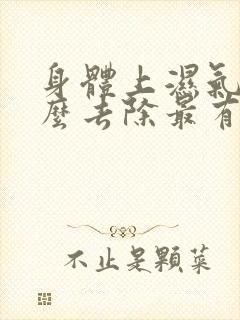 身體上濕氣
麼去除最有
不止是顆菜